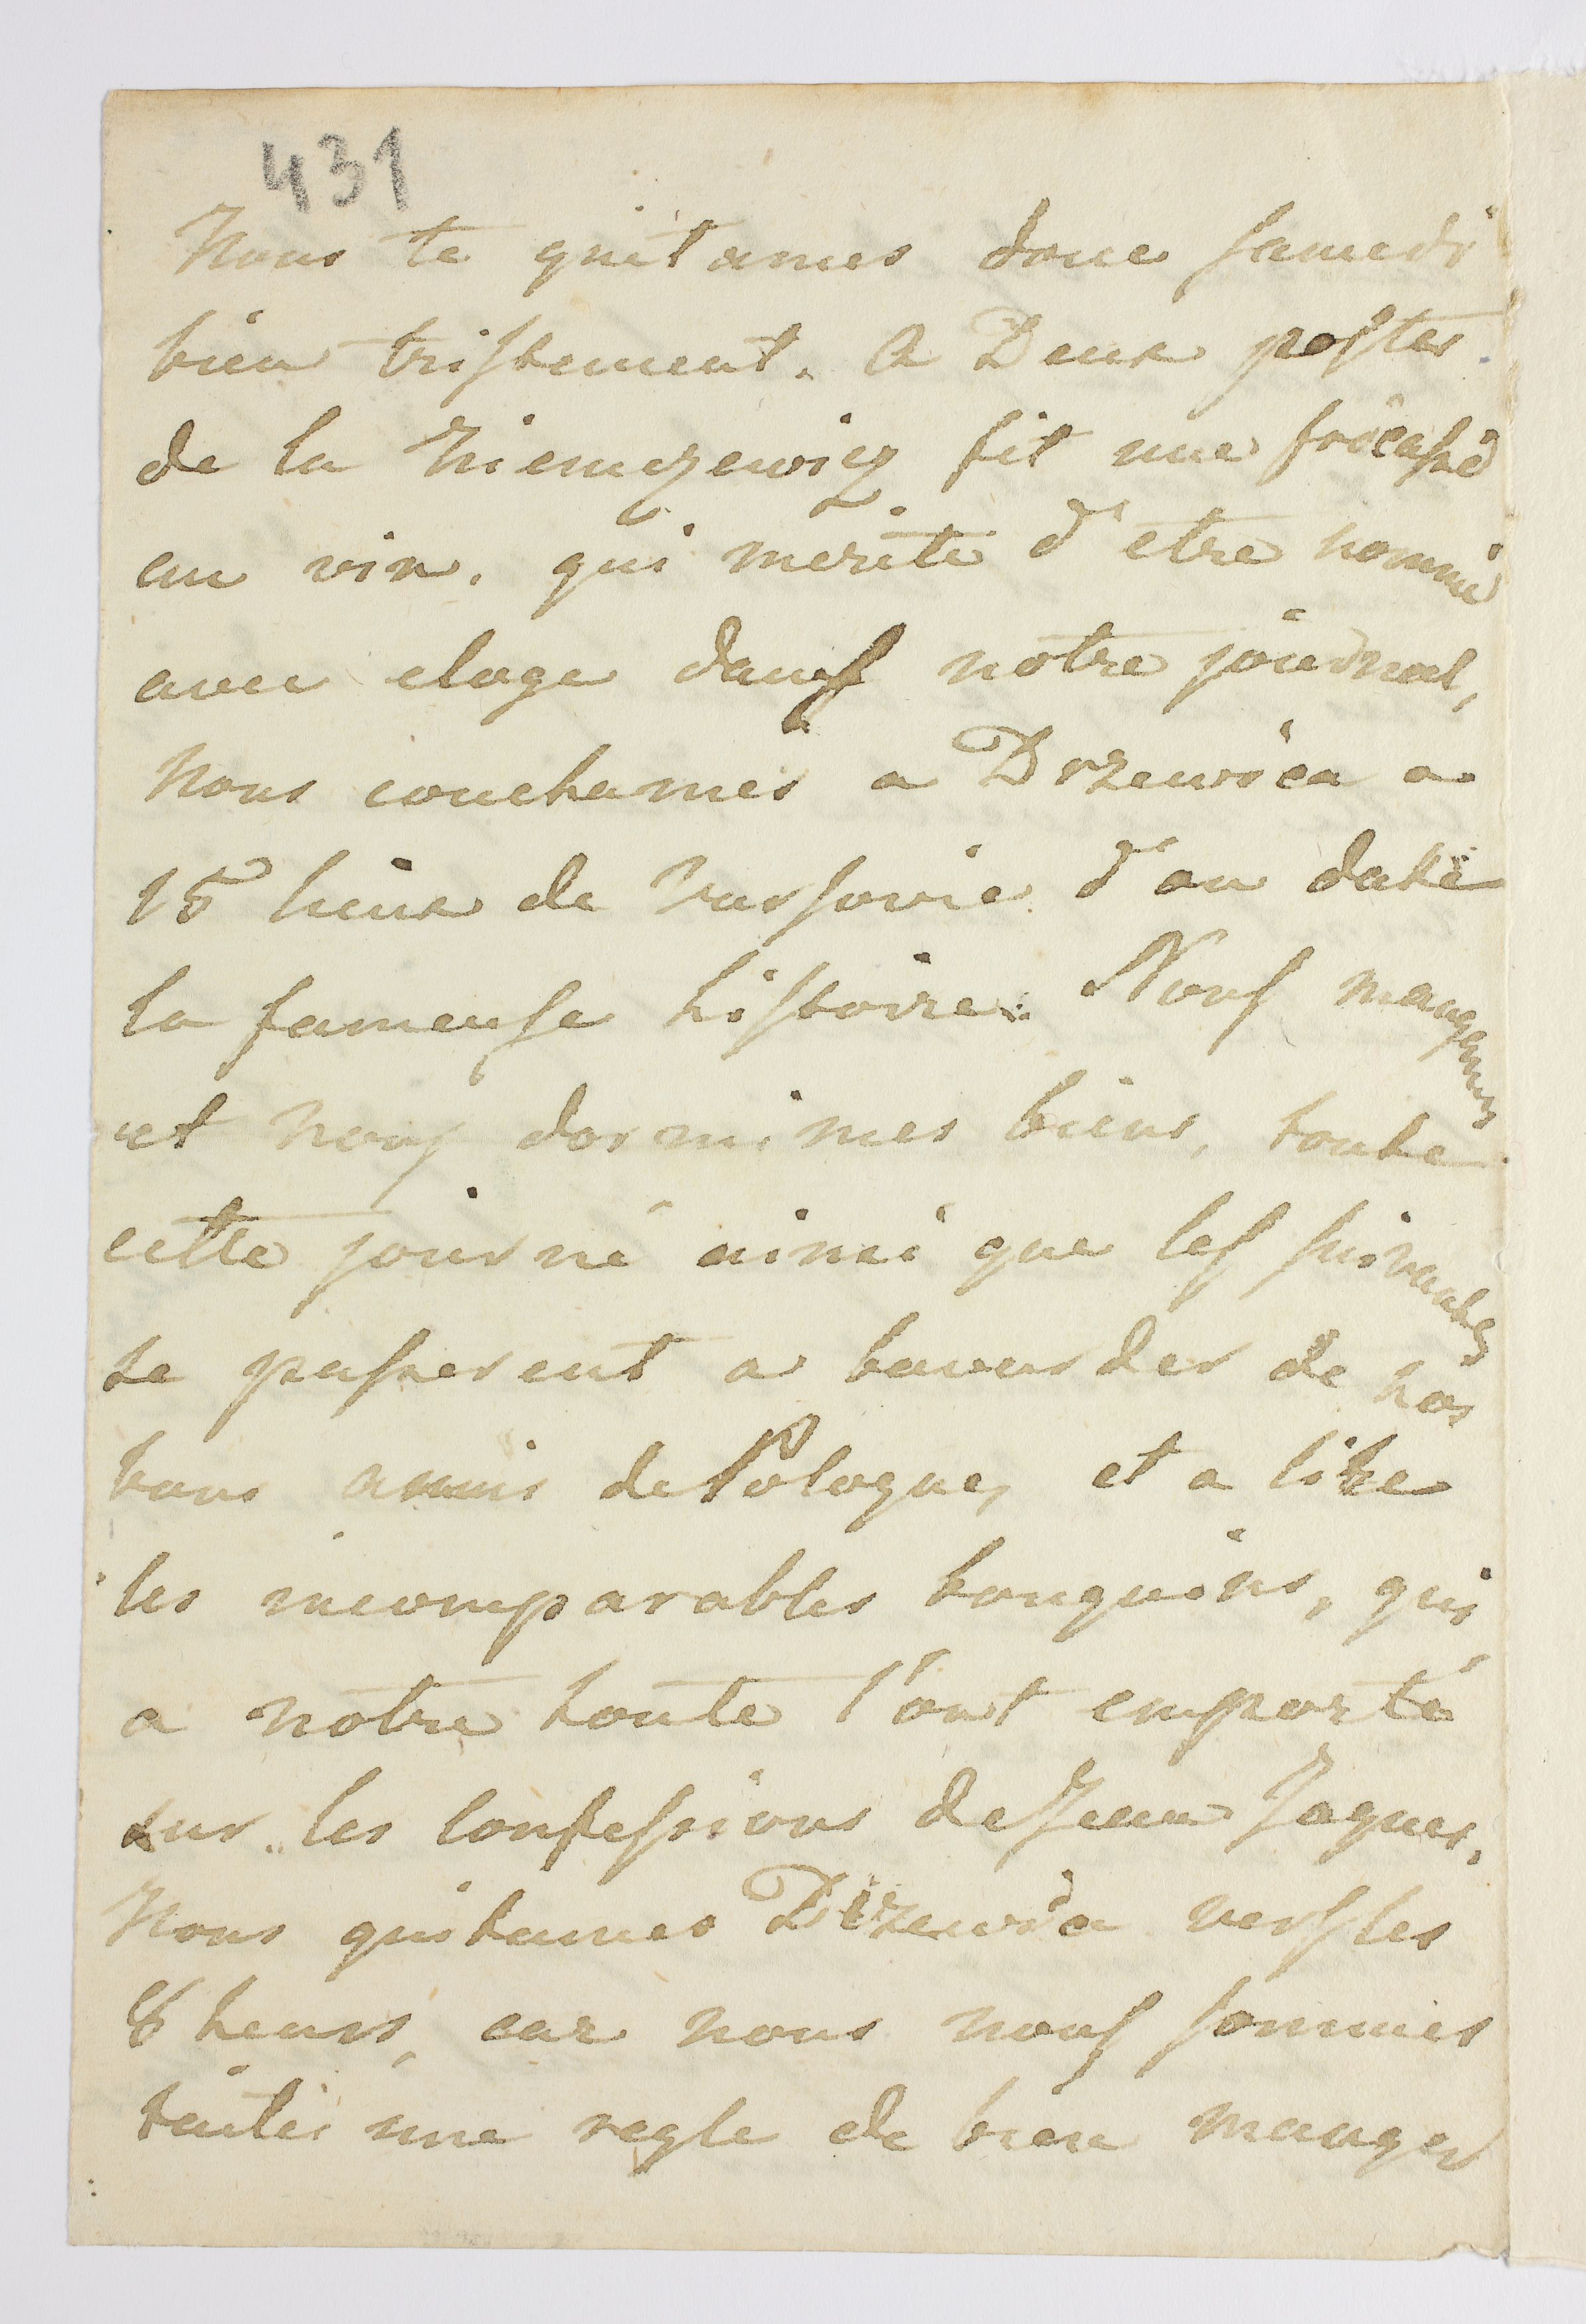 431
Nous te quitames donc samedi
bien tristement. A Deux postes
de la Niemczewicz fit une frïcassé
au vin. qui mérite d'etre nommé
avec eloge dans notre journal,
Nous couchames a Drzewica a
15 lieux de Varsovie d'ou date
la fameuse histoire. Nous mangeames
et nous dormimes biens, toute
cette journé ainsi que les suivantes
se passerent a bavarder de nos
bons amis de Pologne, et a lire
les incomparables bouquins, qui
a notre honte l'ont emporté
sur les Confessions de Jean Jaques.
Nous quitames Drzewica vers les
8 heurs, car nous nous sommes
faites une regle de bien manger